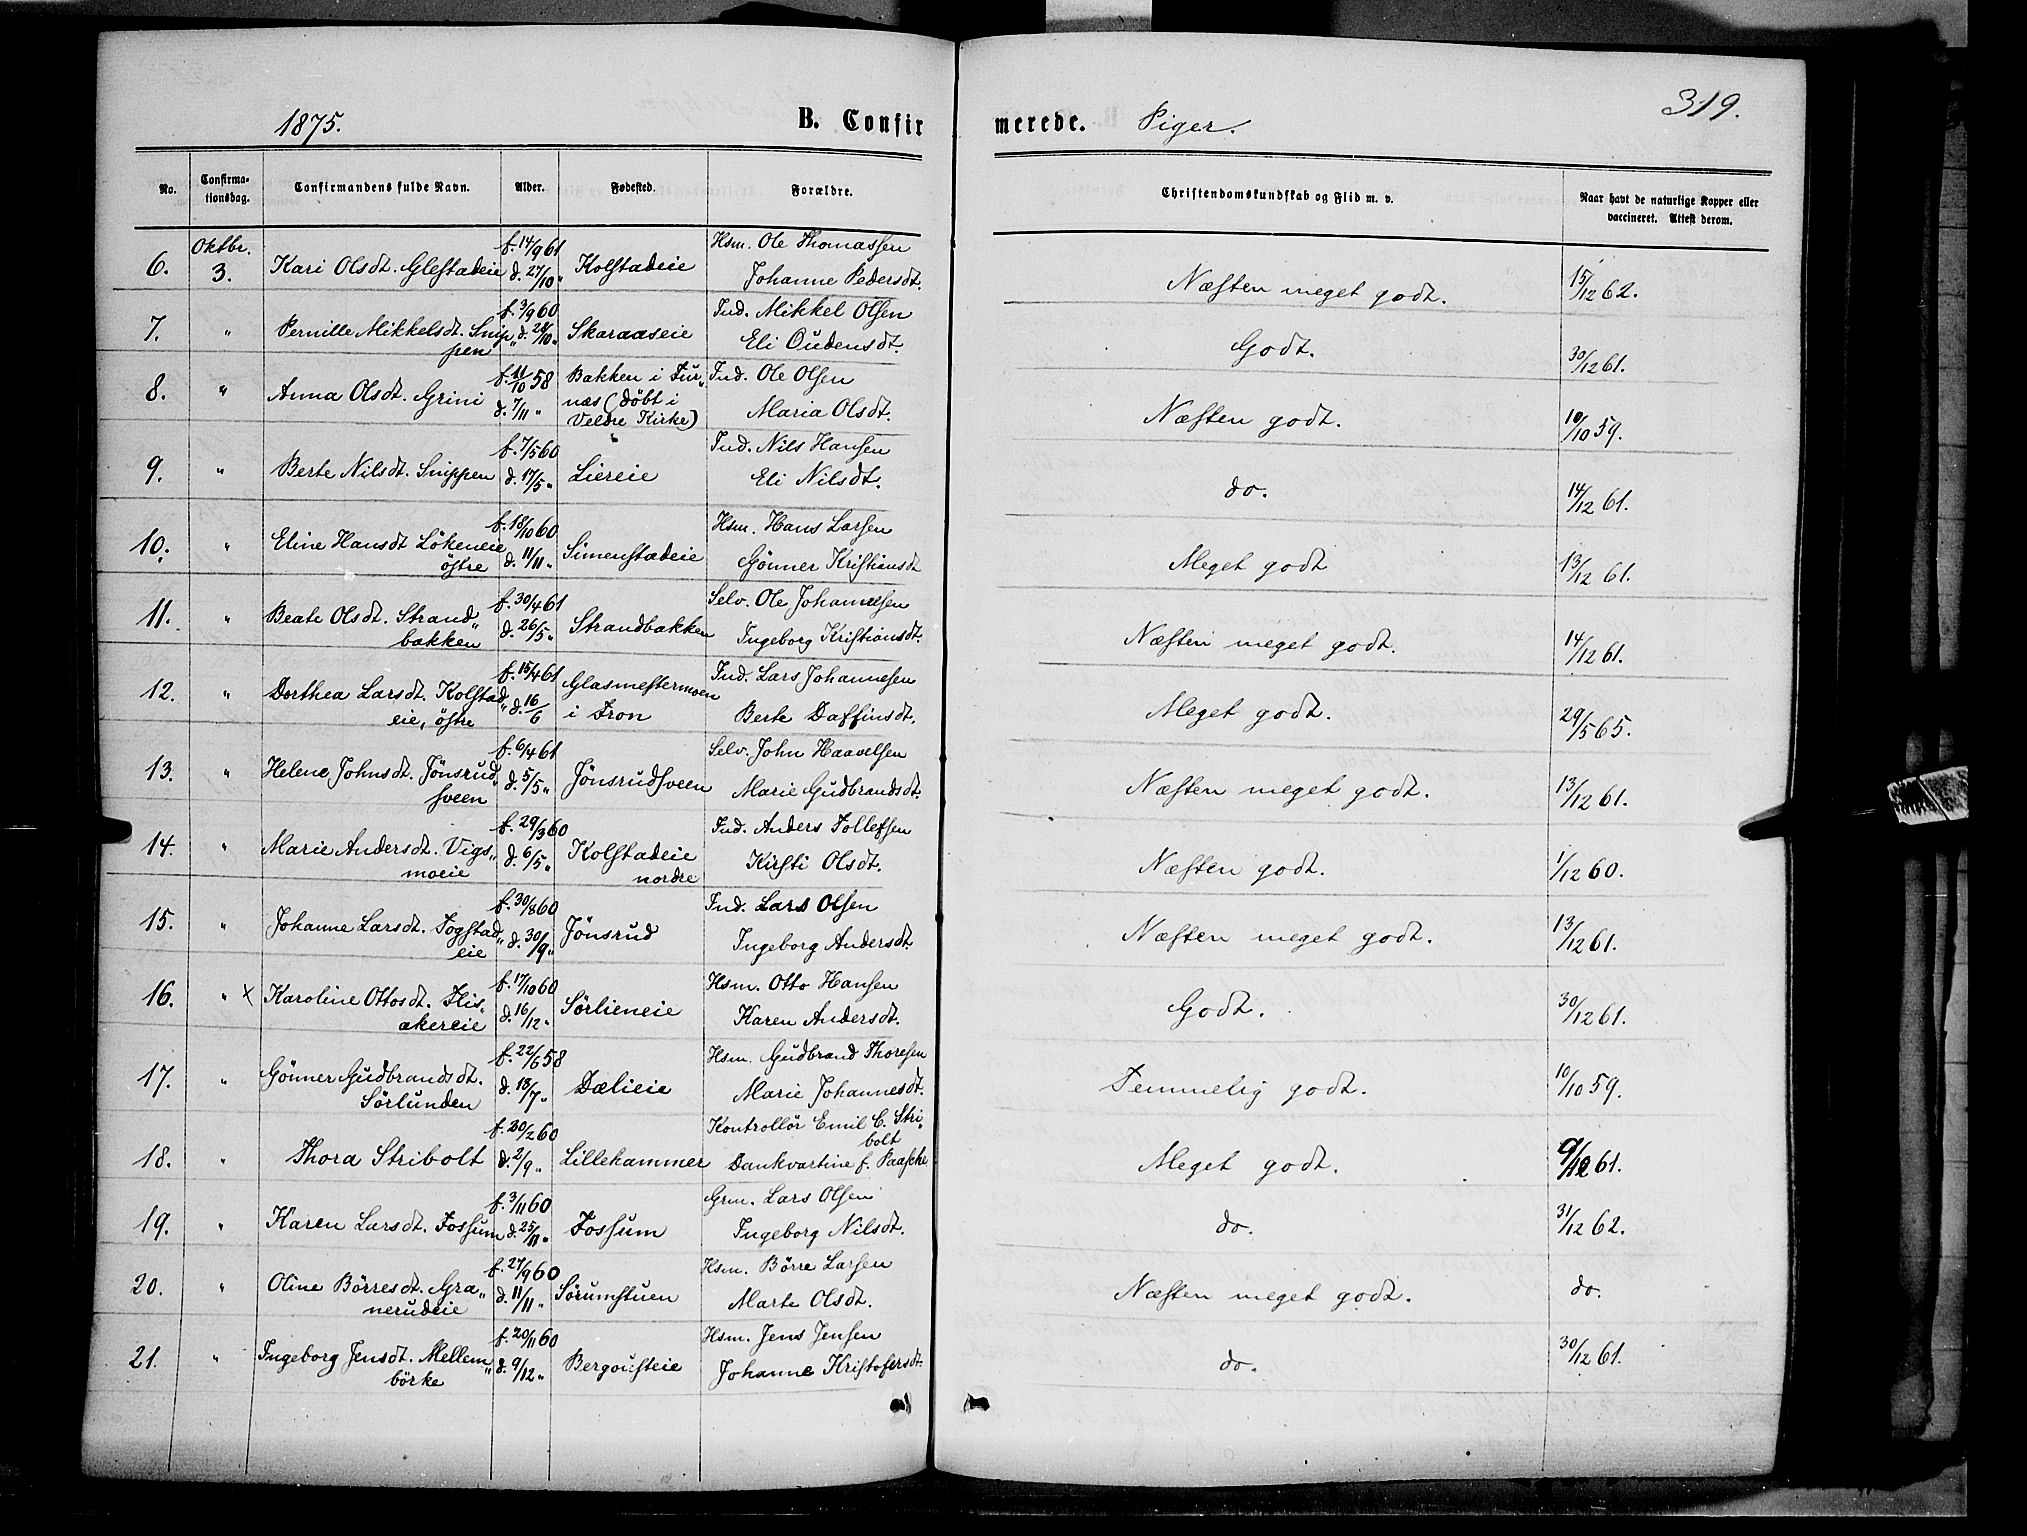 1875. B. Confirmerede. Piger. 319.
No. Confirmationsdag. Confirmandens fulde Navn. Alder. Fødested. Forældre. Christendomskundskab og Flid m. v. Naar havt de naturlige Kopper eller vaccineret. Attest derom.
6. Oktbr. 3. Kari Olsdt. Glestadeie f. 14/9 61 d. 27/10 " Kolstadeie Hsm. Ole Thomassen
Johanne Pedersdt. Næsten meget godt. 15/12 62.
7. " Pernille Mikkelsdt. Snip„ f. 3/9 60 d. 28/10 " Skaraaseie Ind. Mikkel Olsen
pen Eli Oudensdt. Godt. 30/12 61.
8. " Anna Olsdt. Grini f. 11/10 58 d. 7/11 " Bakken i Fur„ Ind. Ole Olsen
næs (döbt i Maria Olsdt. Næsten godt. 10/10 59.
Veldre Kirke)
9. " Berte Nilsdt. Snippen f. 7/5 60 d. 17/5 " Liereie Ind. Nils Hansen
Eli Nilsdt. do. 14/12 61.
10. " Eline Hansdt Lökeneie f. 18/10 60 d. 11/11 " Simenstadeie Hsm. Hans Larsen
östre Gönner Kristiansdt Meget godt 13/12 61.
11. " Beate Olsdt. Strand„ f. 30/4 61 d. 26/5 " Strandbakken Selv. Ole Johannesen
bakken Ingeborg Kristiansdt. Næsten meget godt. 14/12 61.
12. " Dorthea Larsdt. Kolstad„ f. 15/4 61 d. 16/6 Glasmestermoen Ind. Lars Johannesen
eie, östre i Fron Berte Daffinsdt. Meget godt. 29/5 65.
13. " Helene Johnsdt. Jönsrud„ f. 6/4 61 d. 5/5 " Jönsrudsveen Selv. John Haavelsen
sveen Marie Gudbrandsdt. Næsten meget godt. 13/12 61.
14. " Marie Andersdt. Vigs„ f. 29/3 60 d. 6/5 " Kolstadeie Ind. Anders Tollefsen
moeie nordre Kirsti Olsdt. Næsten godt. 1/12 60.
15. " Johanne Larsdt. Togstad„ f. 30/8 60 d. 30/9 " Jönsrud Ind. Lars Olsen
eie Ingeborg Andersdt Næsten meget godt. 13/12 61.
16. " x Karoline Ottosdt. Flis„ f. 17/10 60 d. 16/12 " Sörlieneie Hsm. Otto Hansen
akereie Karen Andersdt. Godt. 30/12 61.
17. " Gönner Gudbrandsdt. f. 22/6 58 d. 18/7 " Dælieie Hsm. Gudbrand Thoresen
Sörlunden Marie Johannesdt. Temmelig godt. 10/10 59.
18. " Thora Stribolt f. 20/2 60 d. 2/9 " Lillehammer Kontrollör Emil C. Stri„
bolt
Dankvartine f. Paaske Meget godt. 9/12 61.
19. " Karen Larsdt. Fossum f. 3/11 60 d. 25/11 " Fossum Grm. Lars Olsen
Ingeborg Nilsdt. do. 31/12 62.
20. " Oline Börresdt. Gra„ f. 27/9 60 d. 11/11 " Sørumstuen Hsm. Börre Larsen
nerudeie Marte Olsdt. Næsten meget godt. do.
21. " Ingeborg Jensdt. Mellem„ f. 20/11 60 d. 9/12 " Bergousteie Hsm. Jens Jensen
börke Johanne Kristofersdt. do. 30/12 61.